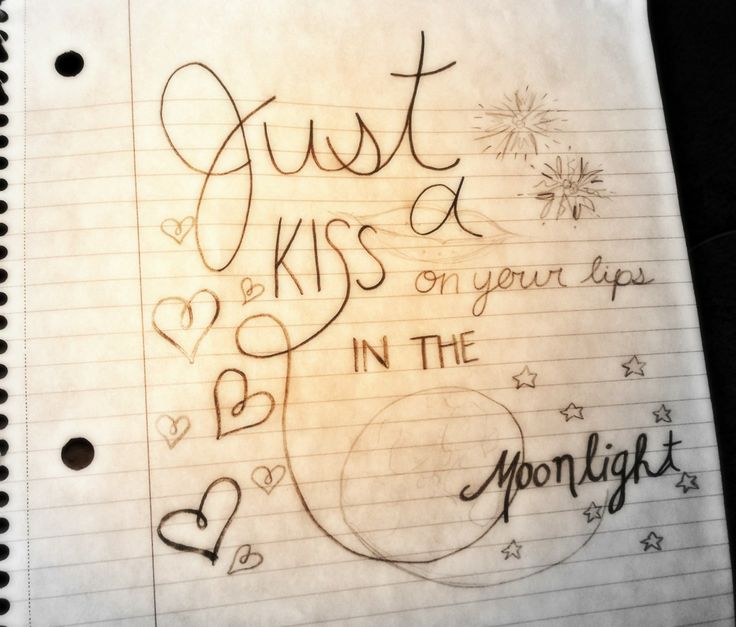 Just
a
KISS
on your lips
IN THE
Moonlight